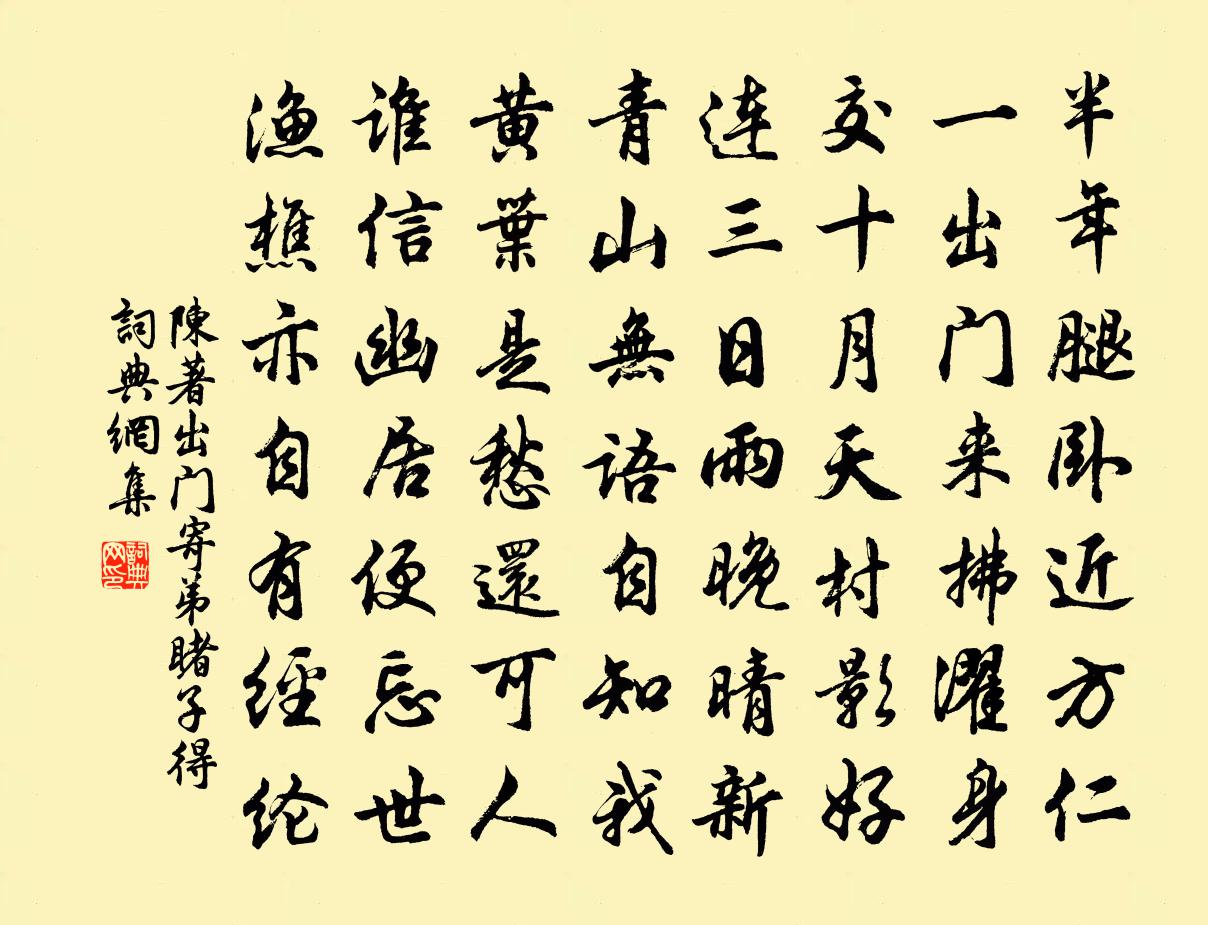 半年腿卧近方仁
一出门来拂濯身
交十月天村影好
连三日雨晚晴新
青山無語自知我
黄葉是愁還可人
谁信幽居便忘世
渔樵亦自有經纶
陳著出门寄弟睹子得
詞典網集
詞典网印